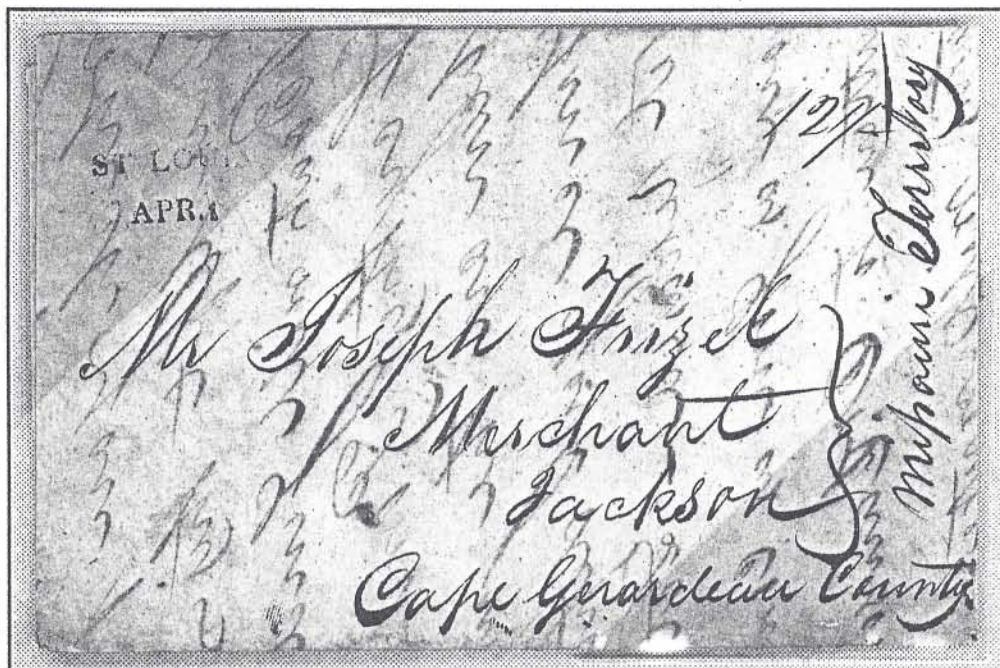 ST LOUIS
APR. 1
12½
Mr Joseph Frizel
Merchant
Jackson
Cape Girardeau County
Missouri Territory